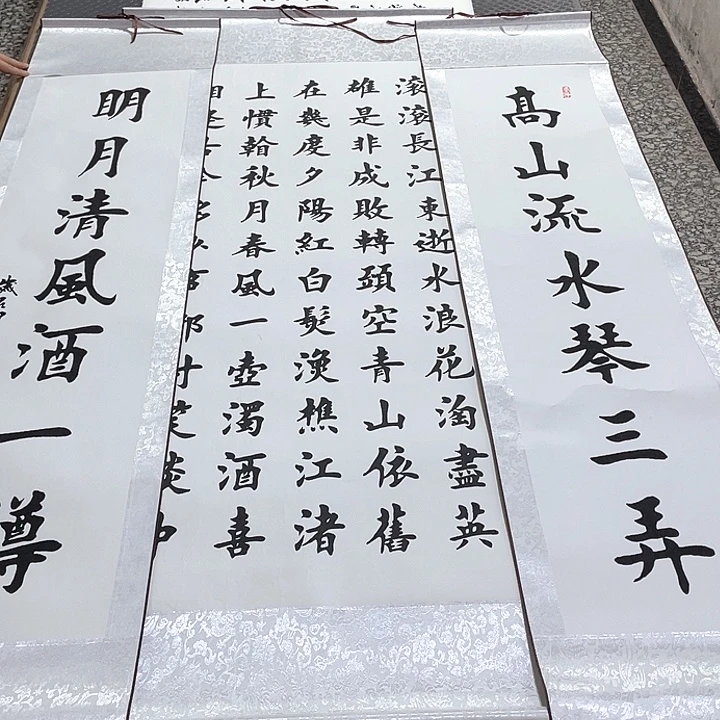 髙山流水琴三弄
滚滚長江東逝水浪花淘盡英
雄是非成敗轉頭空青山依舊
在幾度夕陽紅白髮漁樵江渚
上慣翰秋月春風一壺濁酒喜
明月清風酒一樽